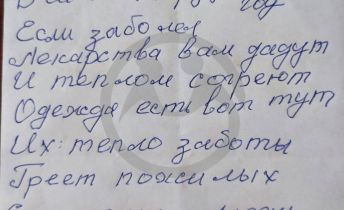 году
Если заболел
Лекарства вам дадут
И теплом согреют
Одежда есть вот тут
Их: тепло заботы
Греет пожилых